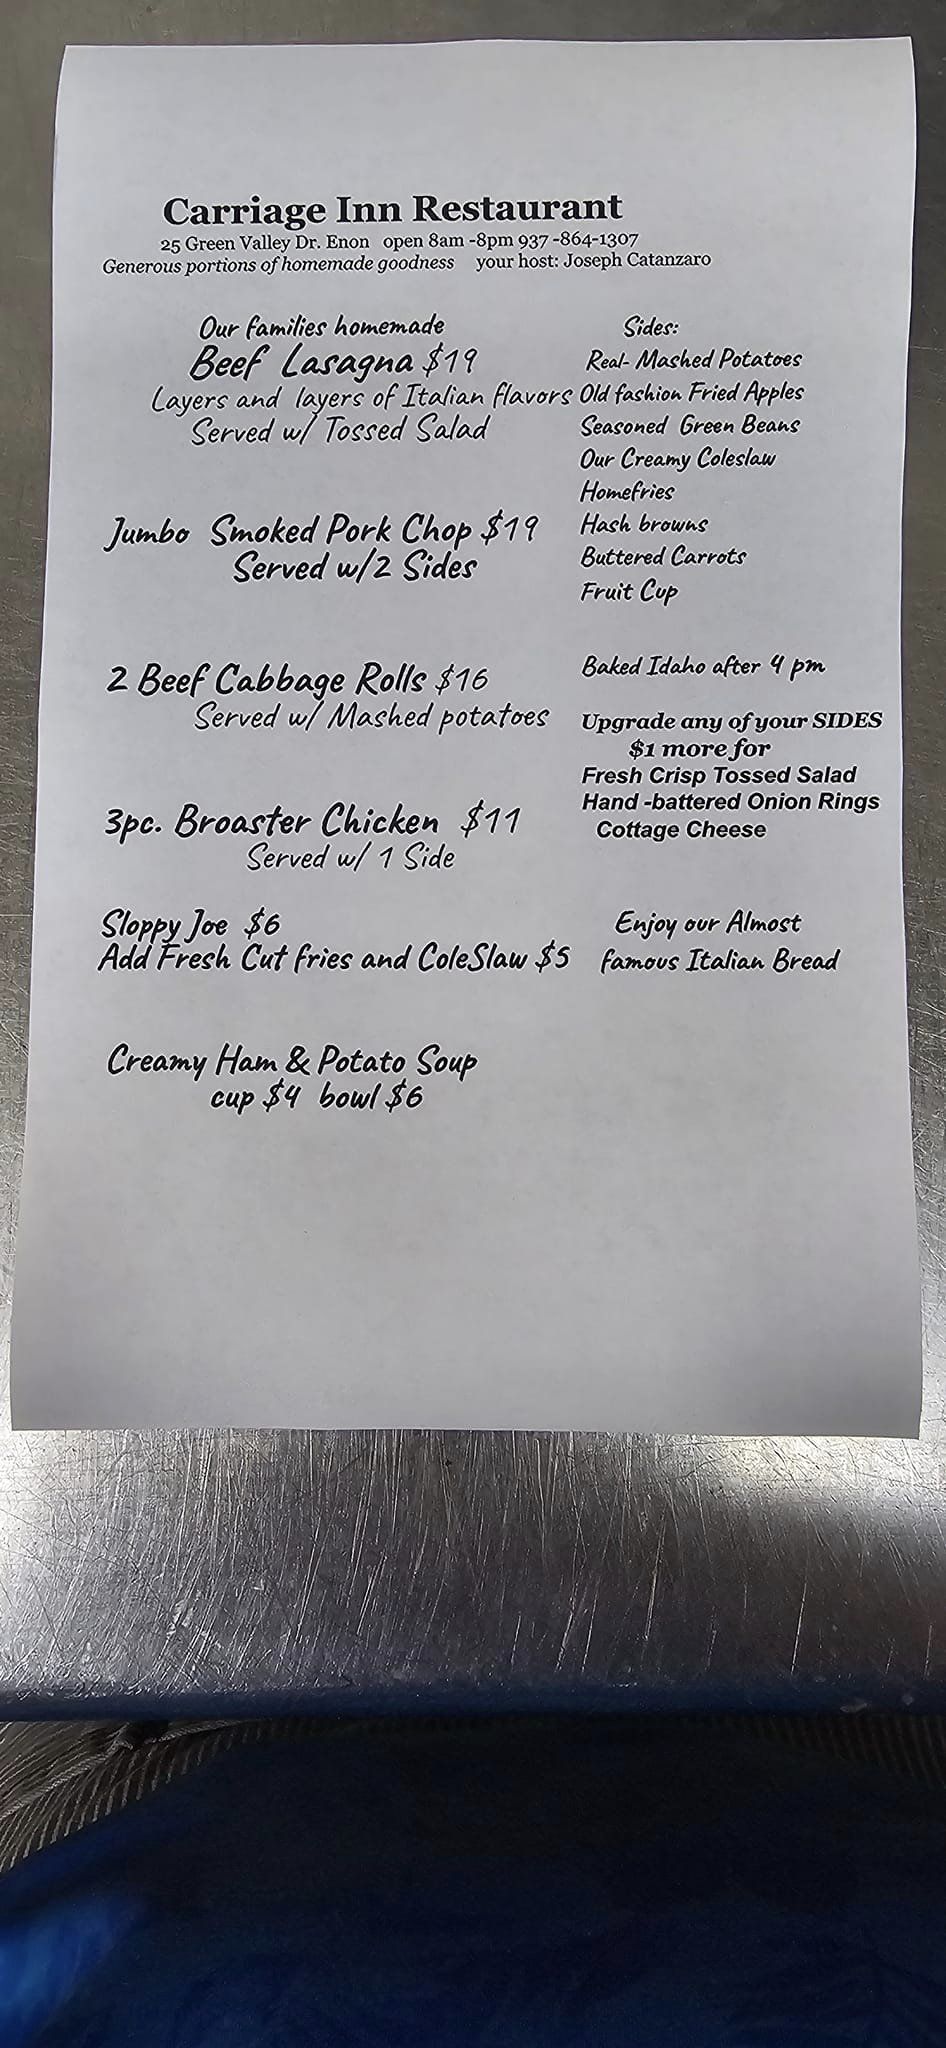 Carriage Inn Restaurant
25 Green Valley Dr. Enon open 8am -8pm 937 -864-1307
Generous portions of homemade goodness your host: Joseph Catanzaro
Our families homemade
Beef Lasagna $19
Layers and layers of Italian flavors
Served w/ Tossed Salad
Jumbo Smoked Pork Chop $19
Served w/2 Sides
2 Beef Cabbage Rolls $16
Served w/ Mashed potatoes
3pc. Broaster Chicken $11
Served w/ 1 Side
Sloppy Joe $6
Add Fresh Cut fries and ColeSlaw $5
Creamy Ham & Potato Soup
cup $4 bowl $6
Sides:
Real- Mashed Potatoes
Old fashion Fried Apples
Seasoned Green Beans
Our Creamy Coleslaw
Homefries
Hash browns
Buttered Carrots
Fruit Cup
Baked Idaho after 4 pm
Upgrade any of your SIDES
$1 more for
Fresh Crisp Tossed Salad
Hand -battered Onion Rings
Cottage Cheese
Enjoy our Almost
famous Italian Bread